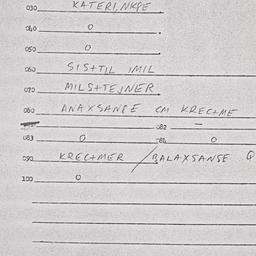 030 KATERI,NKPE
040 0
050 0
060 SIS+TIL IMIL
070 MILS+TEJNER
080 ANAXSANPE CM KREC+ME
082 —
083 0 084 0
090 KREC+MER / BALAXSANSE Q
100 0